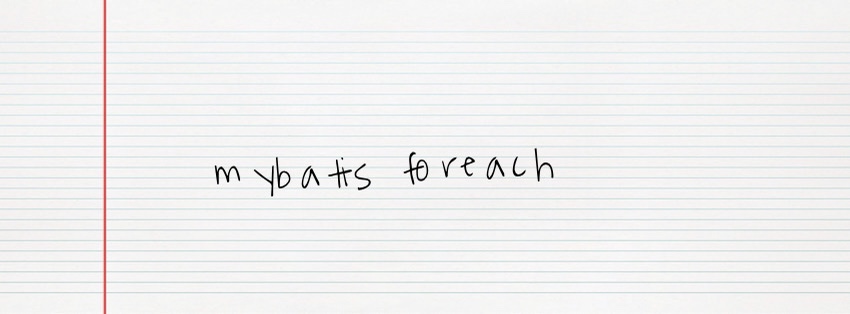 mybatis foreach